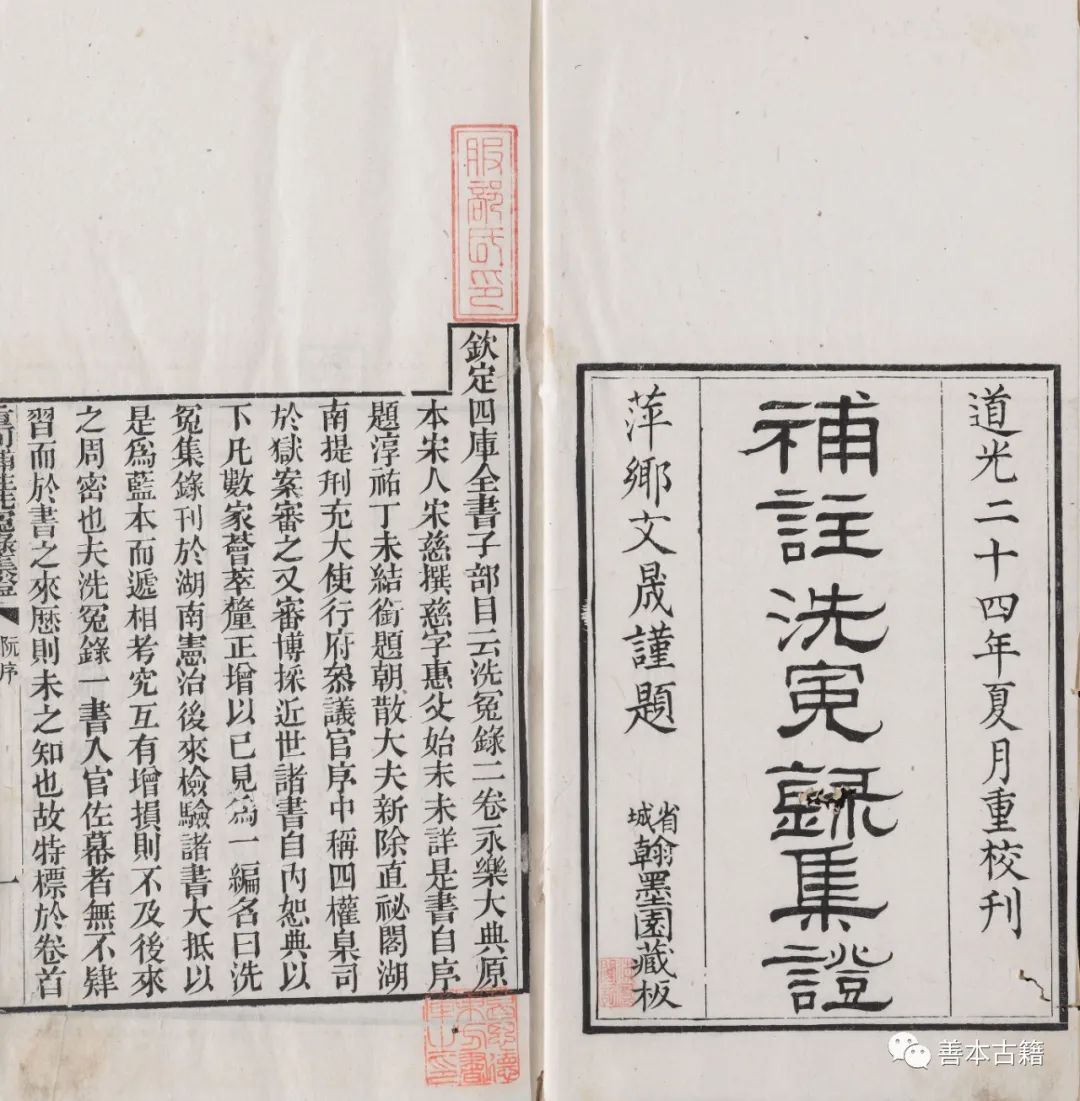 道光二十四年夏月重校刊
補註洗冤錄集證
萍鄉文晟謹題
省城翰墨園藏板
服部氏印
欽定四庫全書子部目云洗冤錄二卷永樂大典原
本宋人宋慈撰慈字惠父始末未詳是書自序
題淳祐丁未結銜題朝散大夫新除直祕閣湖
南提刑充大使行府叅議官序中稱四權臬司
於獄案審之又審博採近世諸書自內恕典以
下凡數家薈萃釐正增以己見為一編名曰洗
冤集錄刊於湖南憲治後來檢驗諸書大抵以
是爲藍本而遞相考究互有增損則不及後來
之周密也夫洗冤錄一書入官佐幕者無不肄
習而於書之來歷則未之知也故特標於卷首
重刊補註洗冤錄集證
阮序
一
善本古籍